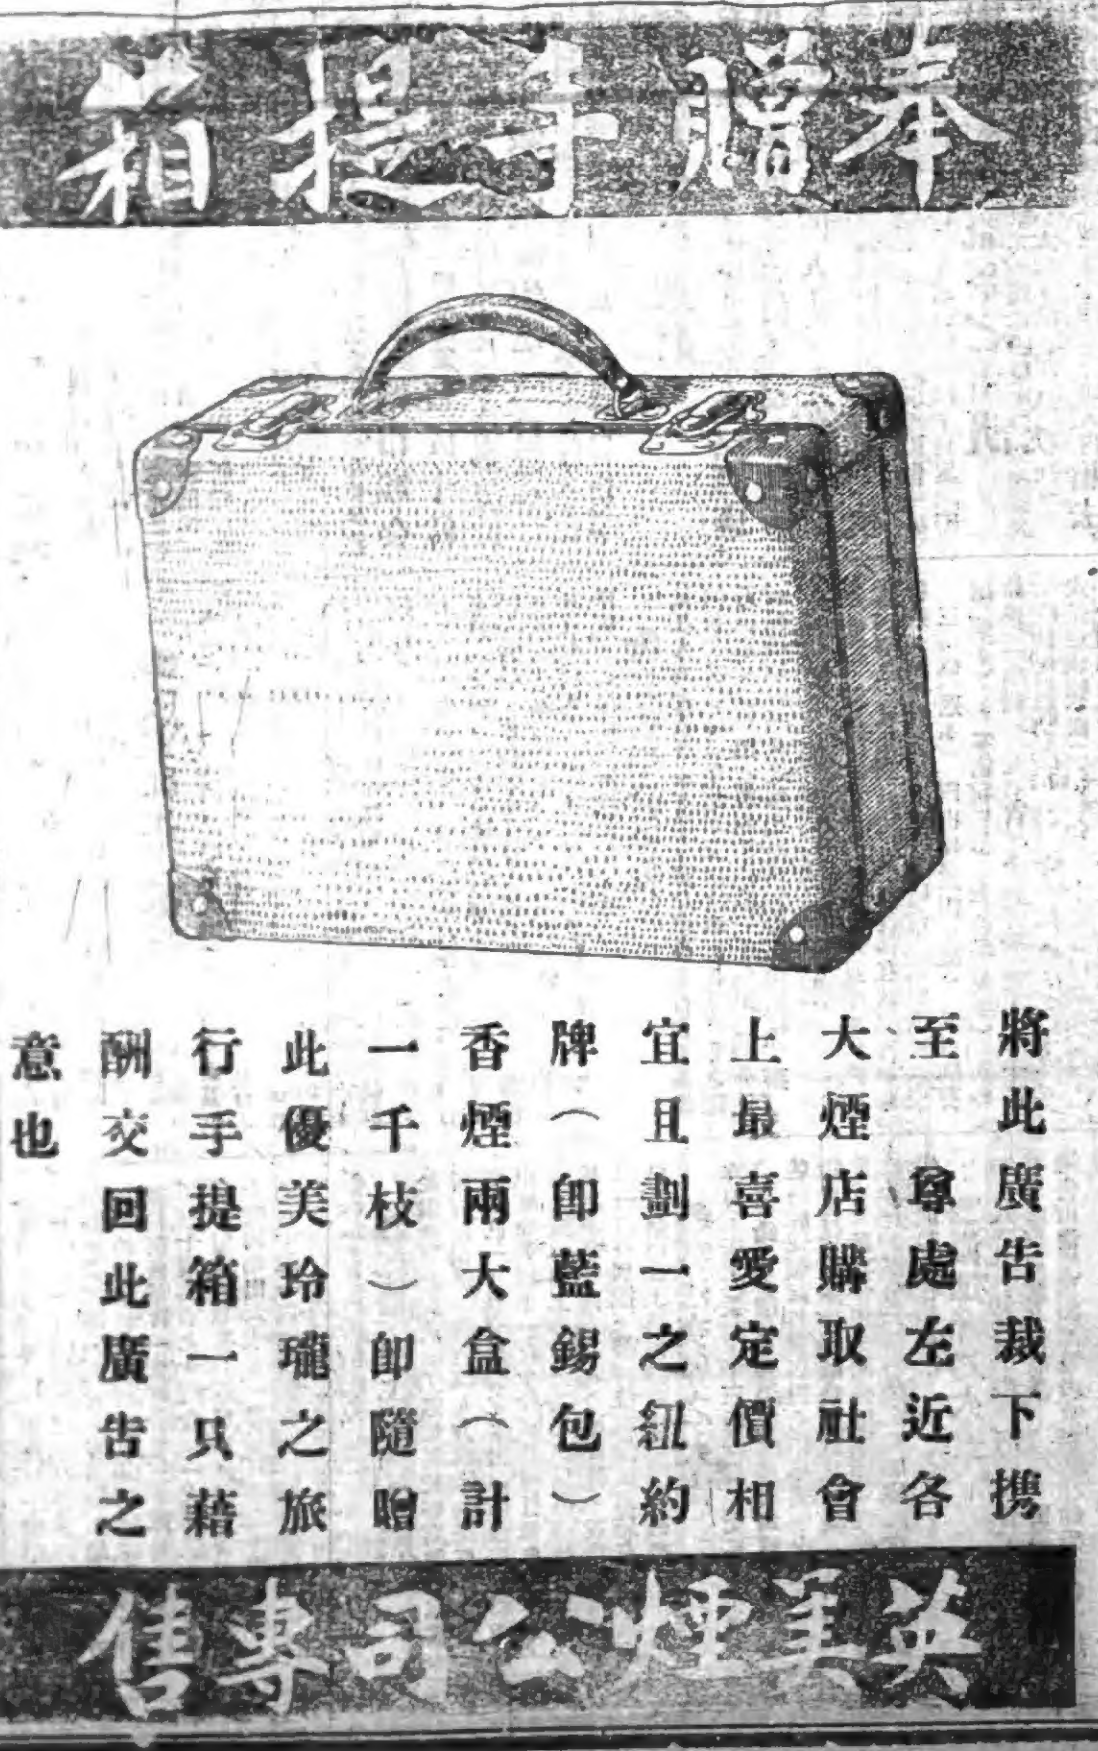 奉贈手提箱
將此廣告裁下携
至　尊處左近各
大煙店購取社會
上最喜愛定價相
宜且劃一之紐約
牌（卽藍錫包）
香煙兩大盒（計
一千枝）卽隨贈
此優美玲瓏之旅
行手提箱一只藉
酬交回此廣告之
意也
英美煙公司專售